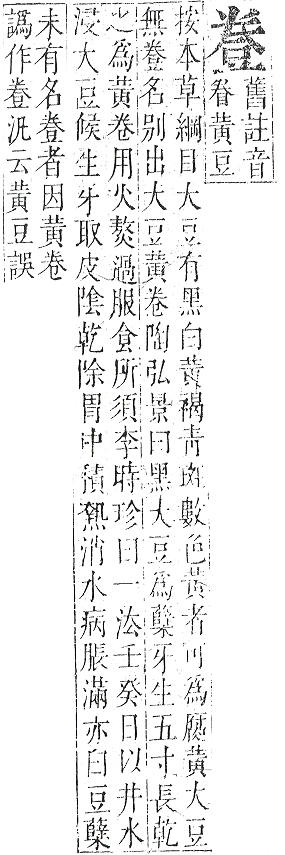 𧯦
舊註音
眷黃豆
按本草綱目大豆有黑白黃褐青斑數色黃者可為腐黃大豆
無𧯦名別出大豆黃卷陶弘景曰黑大豆為糱牙生五寸長乾
之為黃卷用火熬過服食所須李時珍曰一法壬癸日以井水
浸大豆候生牙取皮陰乾除胃中積熱消水病脹滿亦曰豆糱
未有名𧯦者因黃卷
譌作𧯦汎云黃豆誤